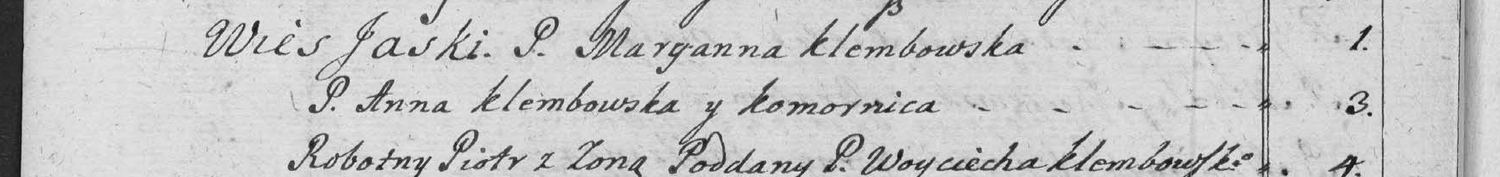 Wiès Jaski. P. Maryanna klembowska - - - - „ 1.
P. Anna klembowska y komornica - - - - - „ 3.
Robotny Piotr z Zoną Poddany P. Woyciecha klembowskiº „ 4.